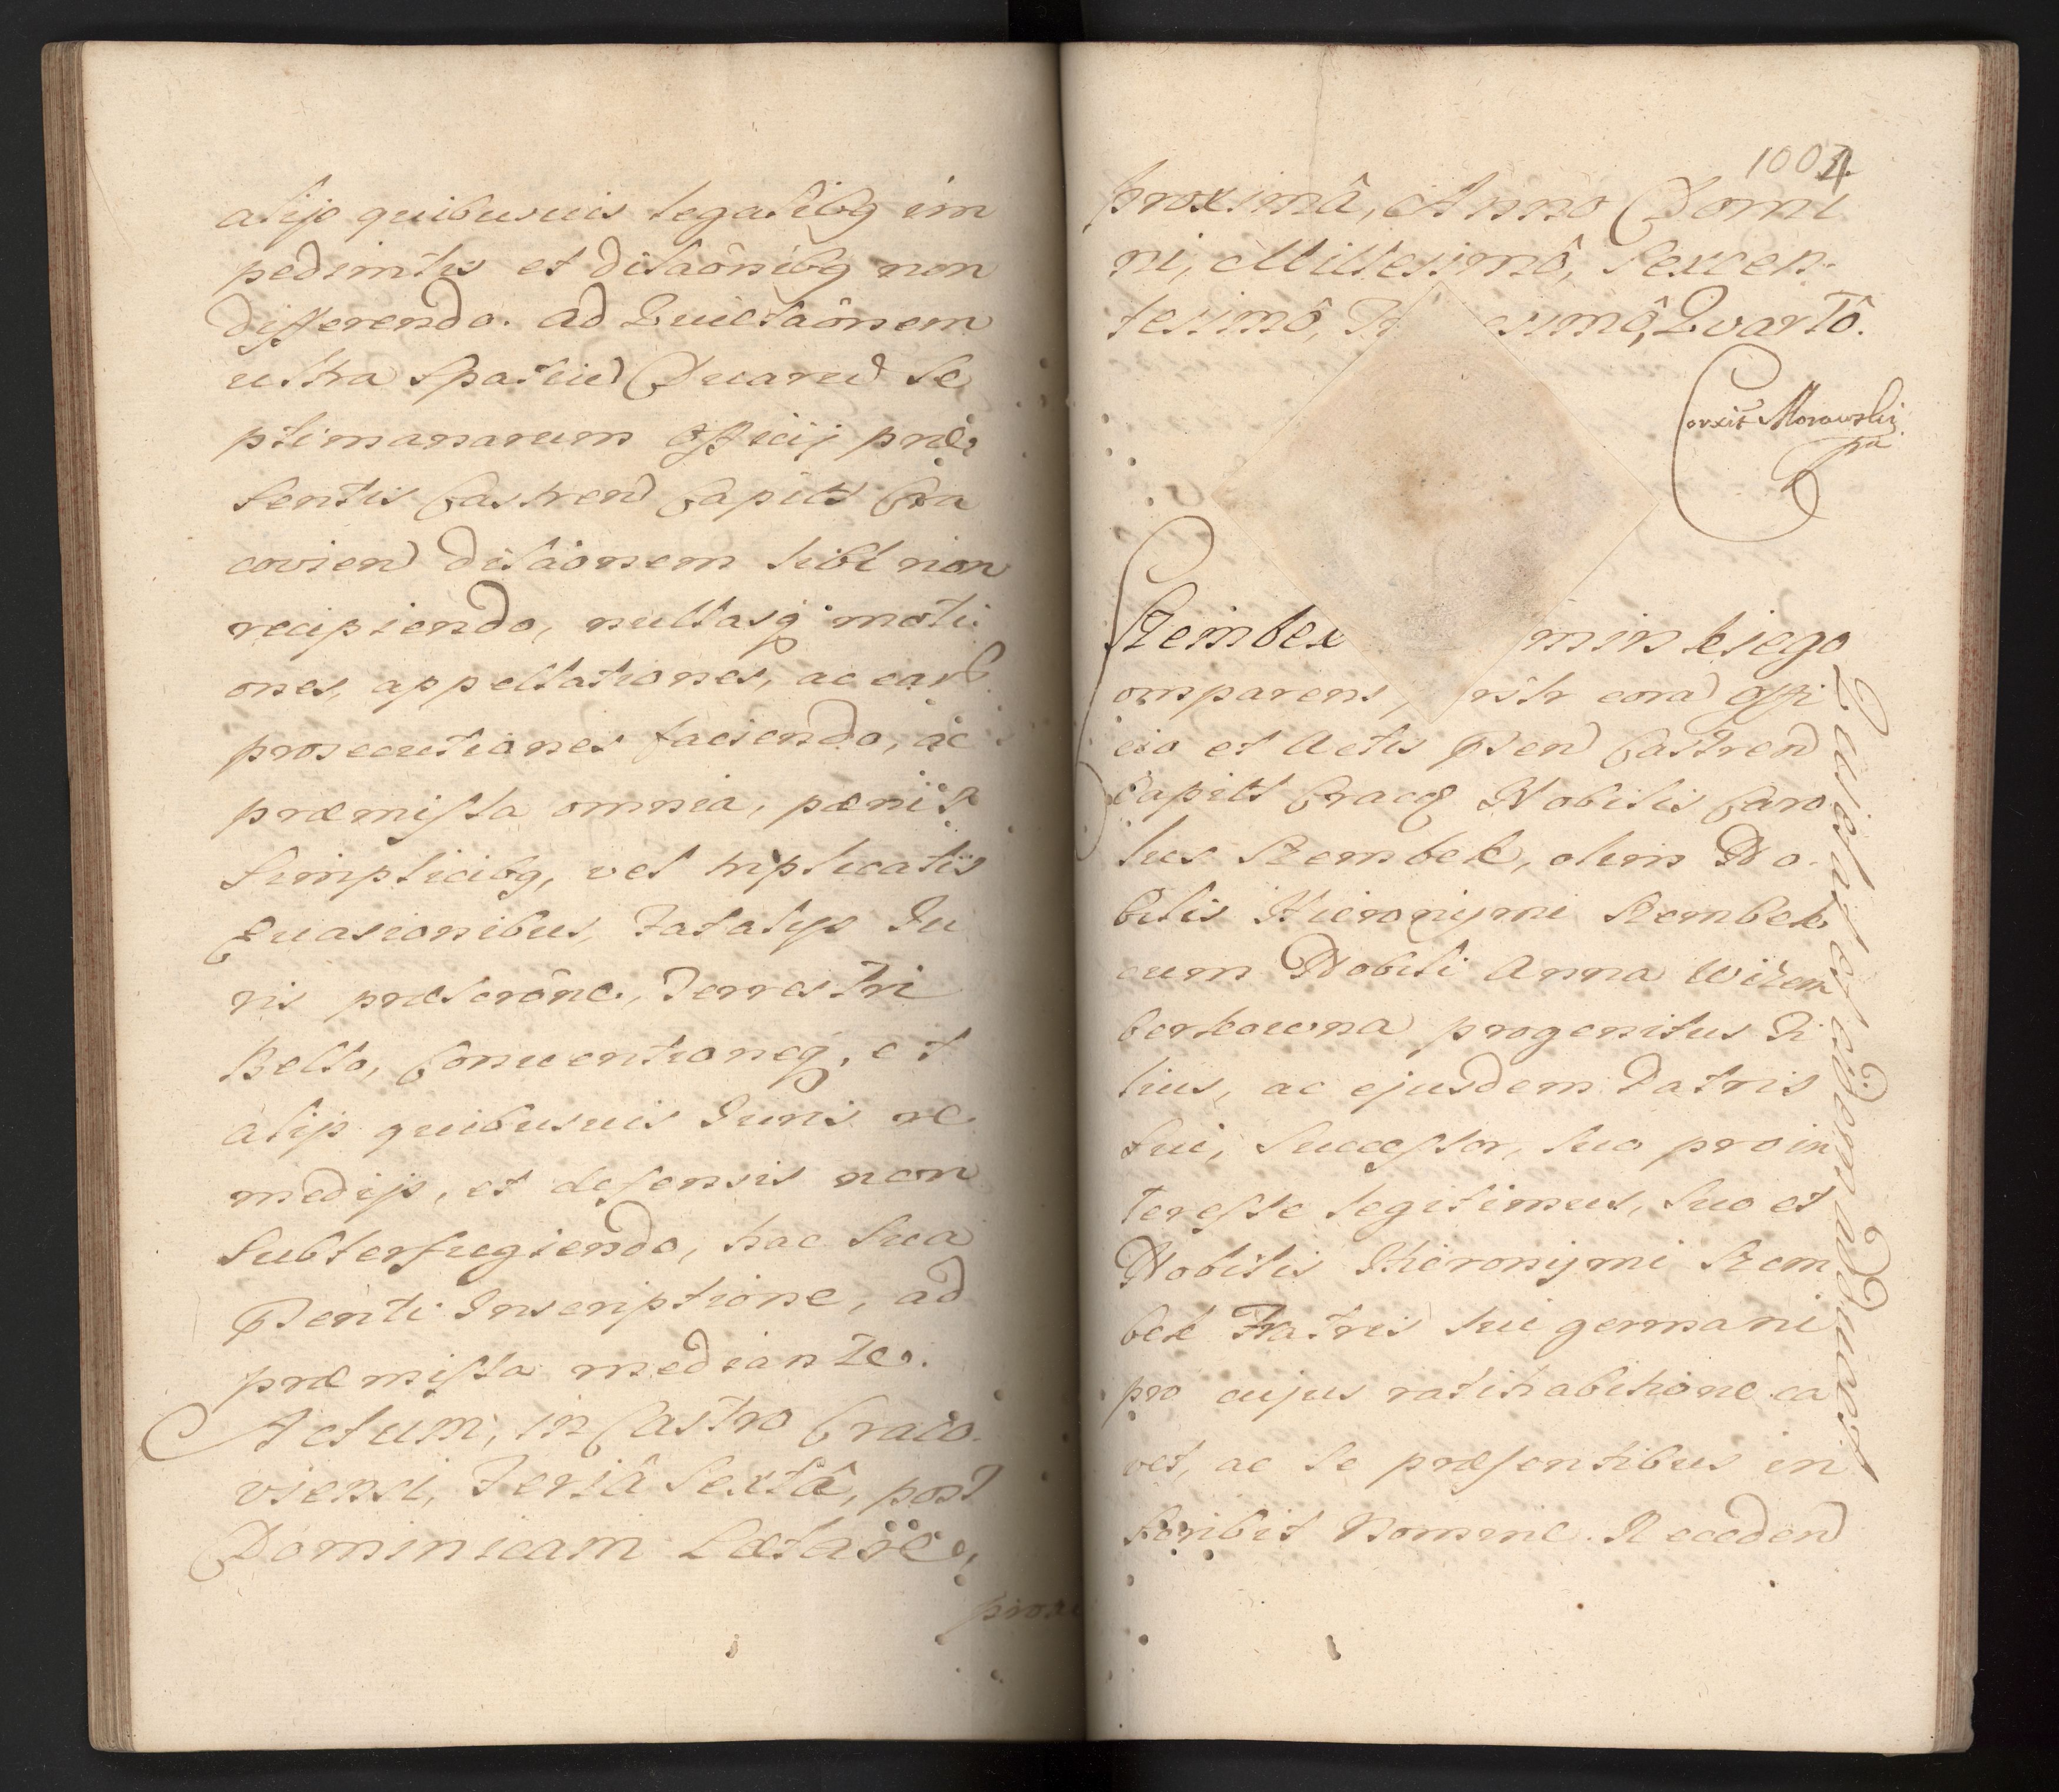 alijs quibusuis legalibg im
pedimtis et dilaônibg non
differendo. ad Quietaônem
ultra Spatiu Duaru Se
ptimanarum Officij præ
sentis Castren Capitt Cra
covien dilaonem sibi non
recipiendo, nullasq moti
ones, appellationes, ac ear
prosecutiones faciendo, ac
præmissa omnia, pænis
Simplicibg, vel triplicatis
Euasionibus, Fatalijs Ju
ris præscrône, Terrestri
Bello, Conuentioneq, et
alijs quibusuis Juris re
medijs, et defensis non
Subterfugiendo, hac Sua
Pnti Inscriptione, ad
præmissa mediante.
Actum, in Castro Craco
viensi, Feriâ Sextâ, post
Dominicam Lætare,
proxi
1004
proximâ, Anno Domi
ni, Millesimô, Sexcen-
tesimô, simô, Qvartô.
Corxit Morawski
pa
Szembek minskiego
omparens, cora Offi
cio et Actis Psen Castren
Capitt Cracq Nobilis Caro
lus Szembek, olim No
bilis Hieronijmi Szembek
cum Nobili Anna Witem
berkowna progenitus Fi
lius, ac ejusdem Patris
sui, Successor, suo pro in
teresse legitimus, suo et
Nobilis Hieronijmi Szem
bek Fratris sui germani
pro cujus ratihabitione ca
vet, ac se præsentibus in
scribit Nomine. Receden
Quietat et condemnat